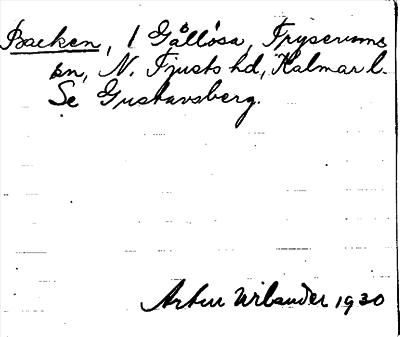 Backen, 1 Gållösa, Fryserums
sn, N. Tjusts hd, Kalmar l.
Se Gustavsberg.
Artur Wilander 1930